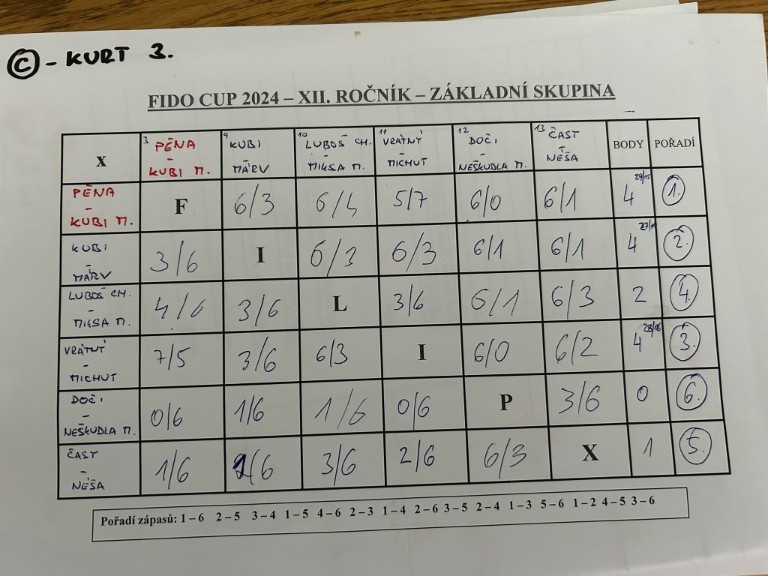 Ⓒ - KURT 3.
FIDO CUP 2024 – XII. ROČNÍK – ZÁKLADNÍ SKUPINA
X 3 PĚNA - KUBI M. 9 KUBI - MÁRV 10 LUBOŠ CH. - MIKSA M. 11 VRÁTNÝ - MICHUT 12 DOČI - NEŠKUDLA M. 13 ČAST - NEŠA BODY POŘADÍ
PĚNA - KUBI M. F 6/3 6/4 5/7 6/0 6/1 4 1.
KUBI - MÁRV 3/6 I 6/3 6/3 6/1 6/1 4 2.
LUBOŠ CH. - MIKSA M. 4/6 3/6 L 3/6 6/1 6/3 2 4.
VRÁTNÝ - MICHUT 7/5 3/6 6/3 I 6/0 6/2 4 3.
DOČI - NEŠKUDLA M. 0/6 1/6 1/6 0/6 P 3/6 0 6.
ČAST - NEŠA 1/6 1/6 3/6 2/6 6/3 X 1 5.
Pořadí zápasů: 1 – 6 2 – 5 3 – 4 1 – 5 4 – 6 2 – 3 1 – 4 2 – 6 3 – 5 2 – 4 1 – 3 5 – 6 1 – 2 4 – 5 3 – 6